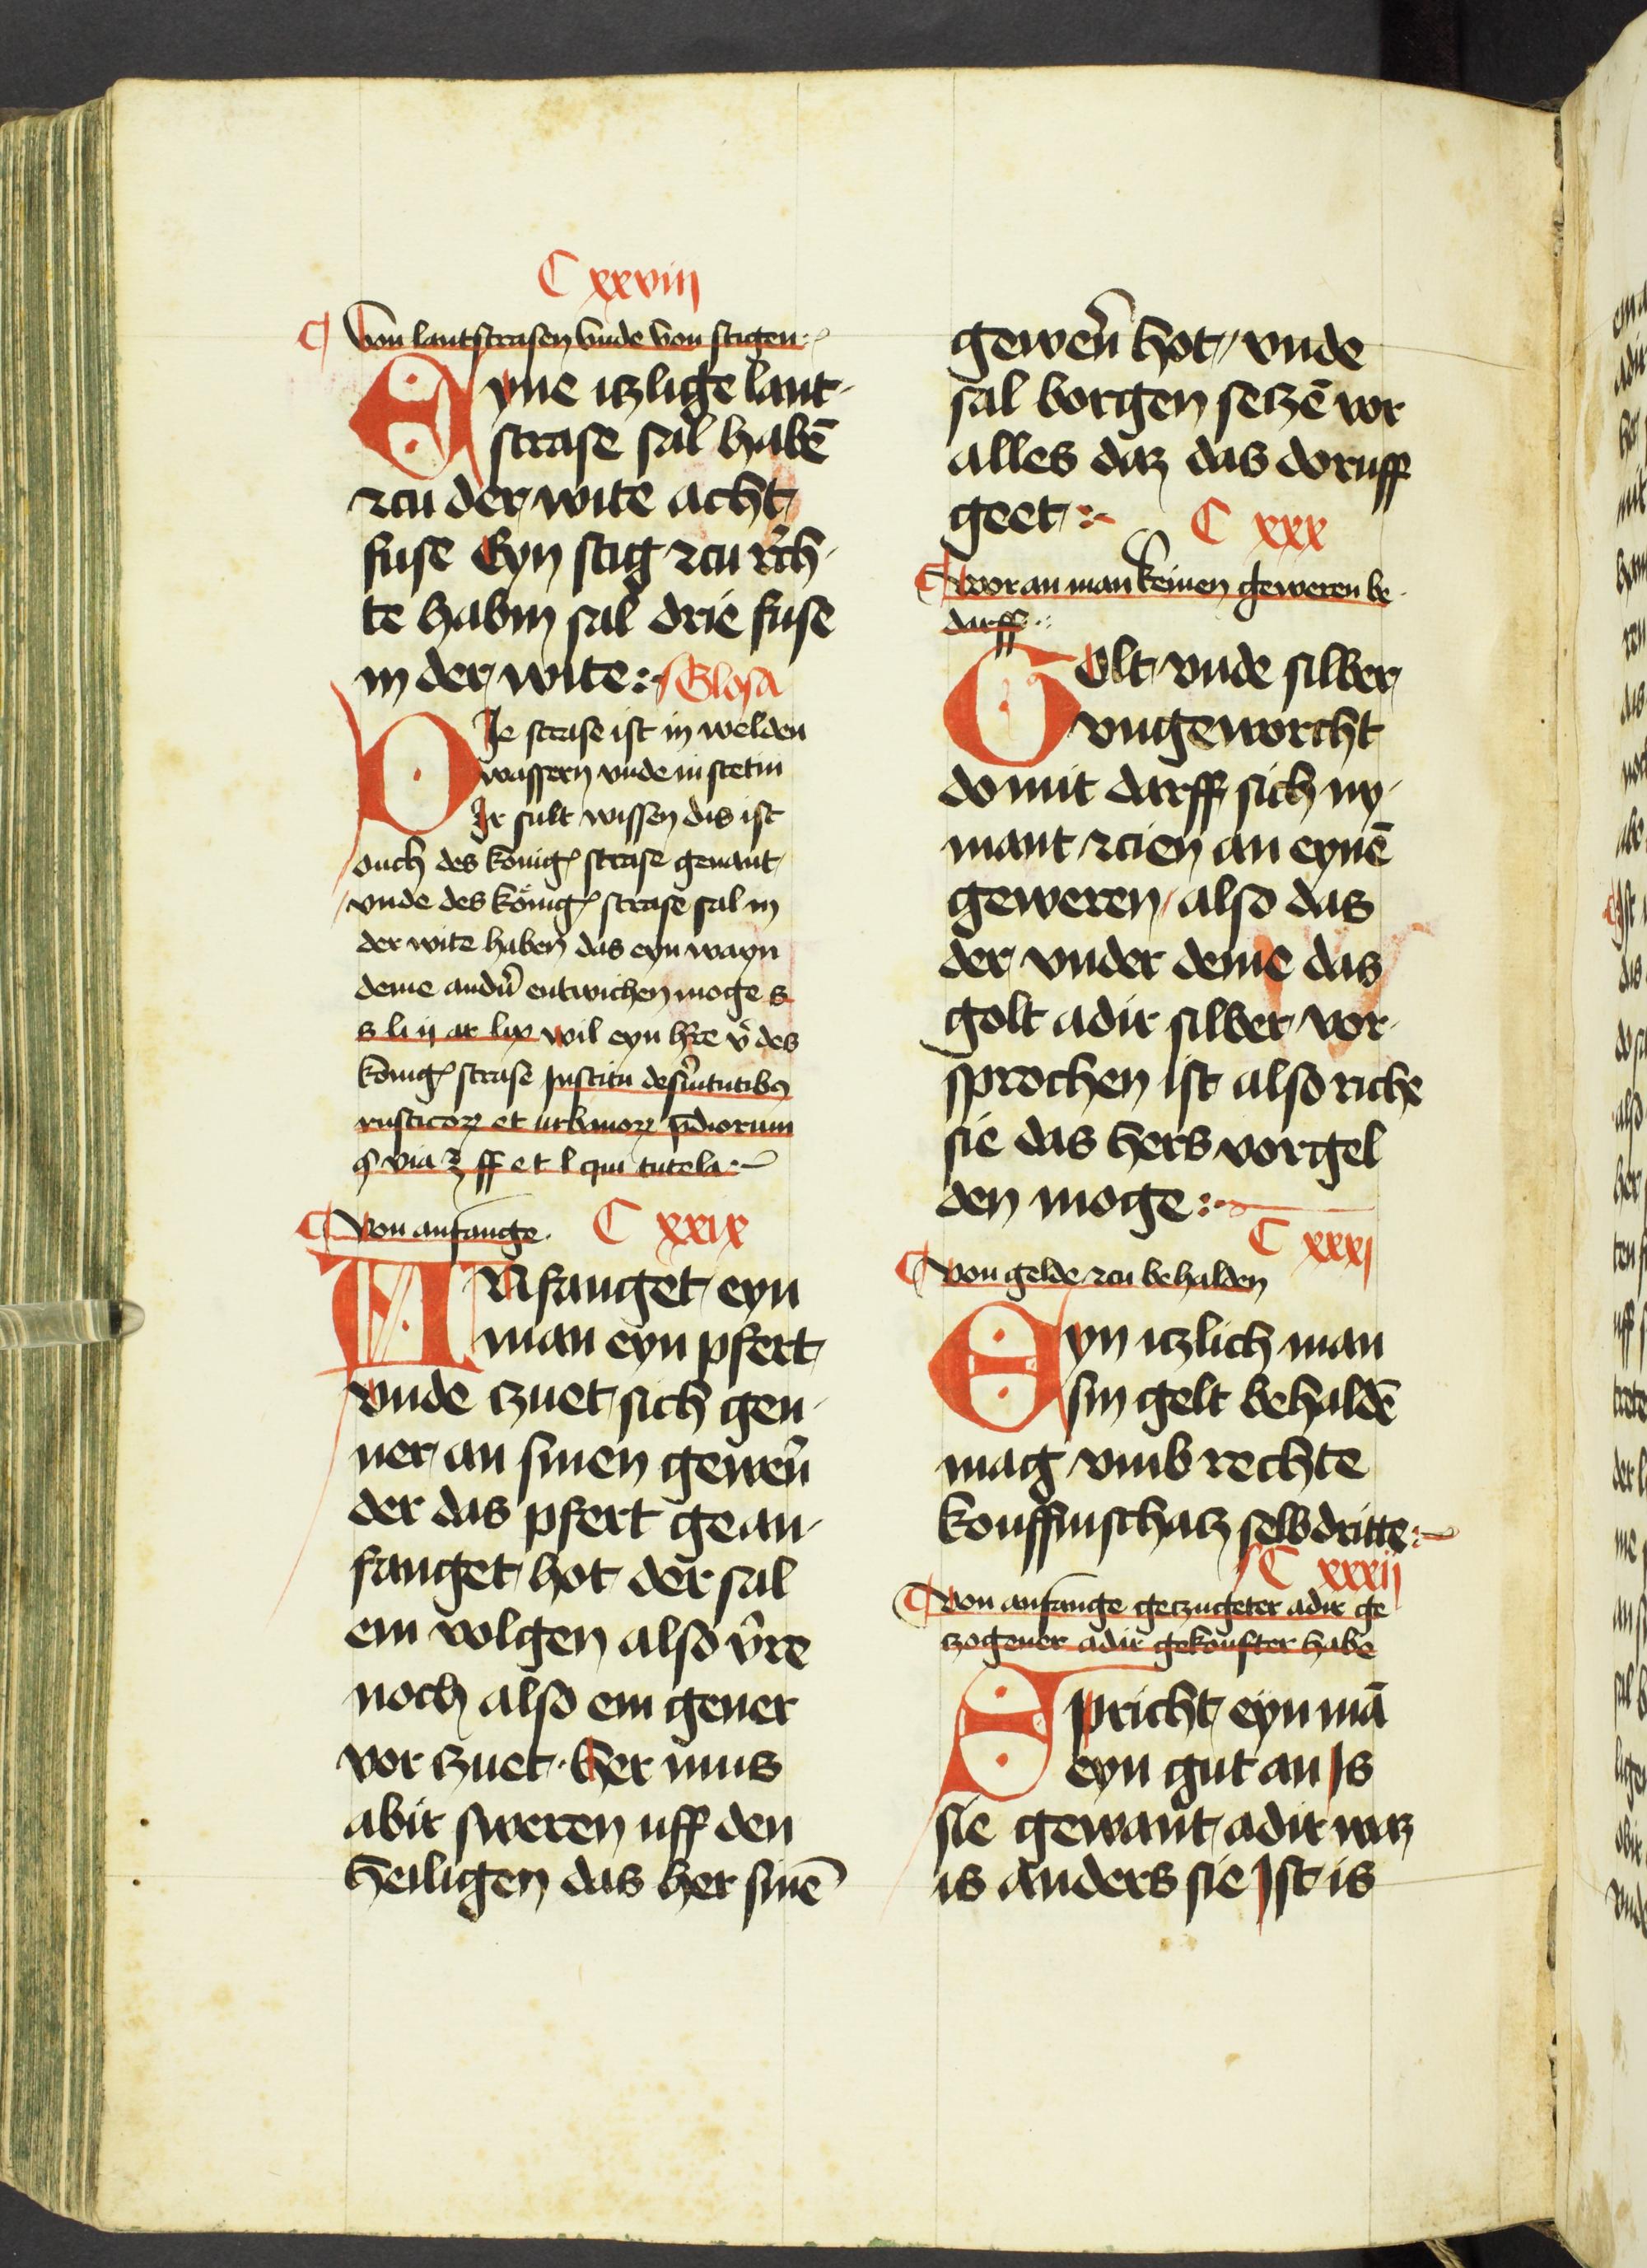 C xxviij
Von lantstrasen vnde von stigen
Eyne itzlige lant-
strase sal habē
zcu der wite acht
fuse Eyn stig zcu rech-
te habin sal drie fuse
in der wite Glosa
Die strase ist in welden
wassern vnde in stetin
Ir sult wissen dis ist
ouch des konigꝭ strase genant
vnde des konigꝭ strase sal in
der wite haben das eyn wayn
deme andn̄ entwichen moge s
s li ij ar lix wil eyn des
konigꝭ strase Institu de
rusticoꝝ et urbanoꝝ p̄diorum
via ff et l qui tutela
Von anfange. C xxix
ANfanget eyn
man eyn pfert
vnde czuet sich gen-
ner an sinen gewern̄
der das pfert gean-
fanget hot der sal
em volgen also v̄re
noch also em gener
vor czuet. Her mus
abir sweren uff den
heiligen das her sinē
gewern̄ hot vnde
sal borgen seczē vor
alles daz das doruff
geet C xxx
Woran man keinen geweren be-
darff
Golt vnde silber
vngeworcht
domit darff sich ny-
mant zcien an eynē
geweren also das
der vnder deme das
golt adir silber vor-
sprochen ist also riche
sie das hers vorgel
den moge
C xxxj
Von gelde zcu behalden
Eyn itzlich man
sin gelt behaldē
mag vmb rechte
kouffmschatz selbdritte
C xxxij
Von anfange geczugeter adir ge
zogener adir gekoufter habe
Spricht eyn mā
eyn gut an Is
sie gewant adir waz
is anders sie Ist is